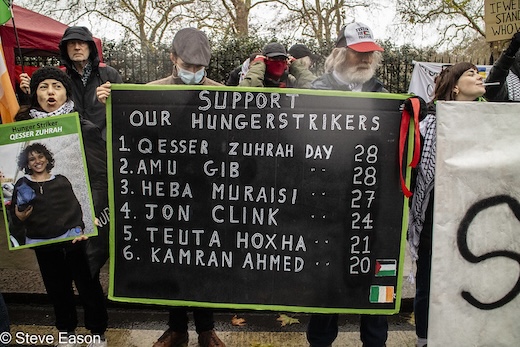 IF WE
STAN
WHO
Hunger Striker
QESSER ZUHRAH
SUPPORT
OUR HUNGERSTRIKERS
1. QESSER ZUHRAH DAY 28
2. AMU GIB " 28
3. HEBA MURAISI " 27
4. JON CLINK " 24
5. TEUTA HOXHA " 21
6. KAMRAN AHMED " 20
S
© Steve Eason